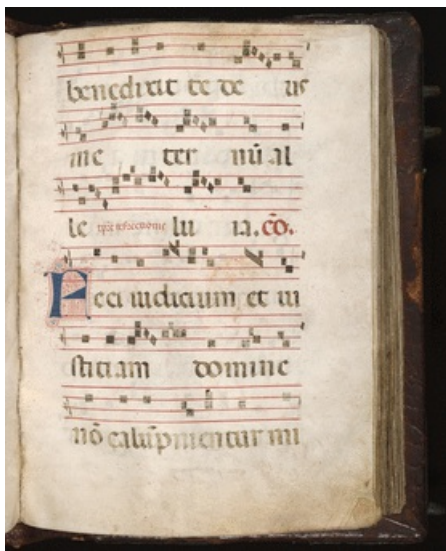 benedixit te de us
me ter nū al
le lu ia. cō.
Feci iudicium et iu
sticiam domine
nō calūpnientur mi